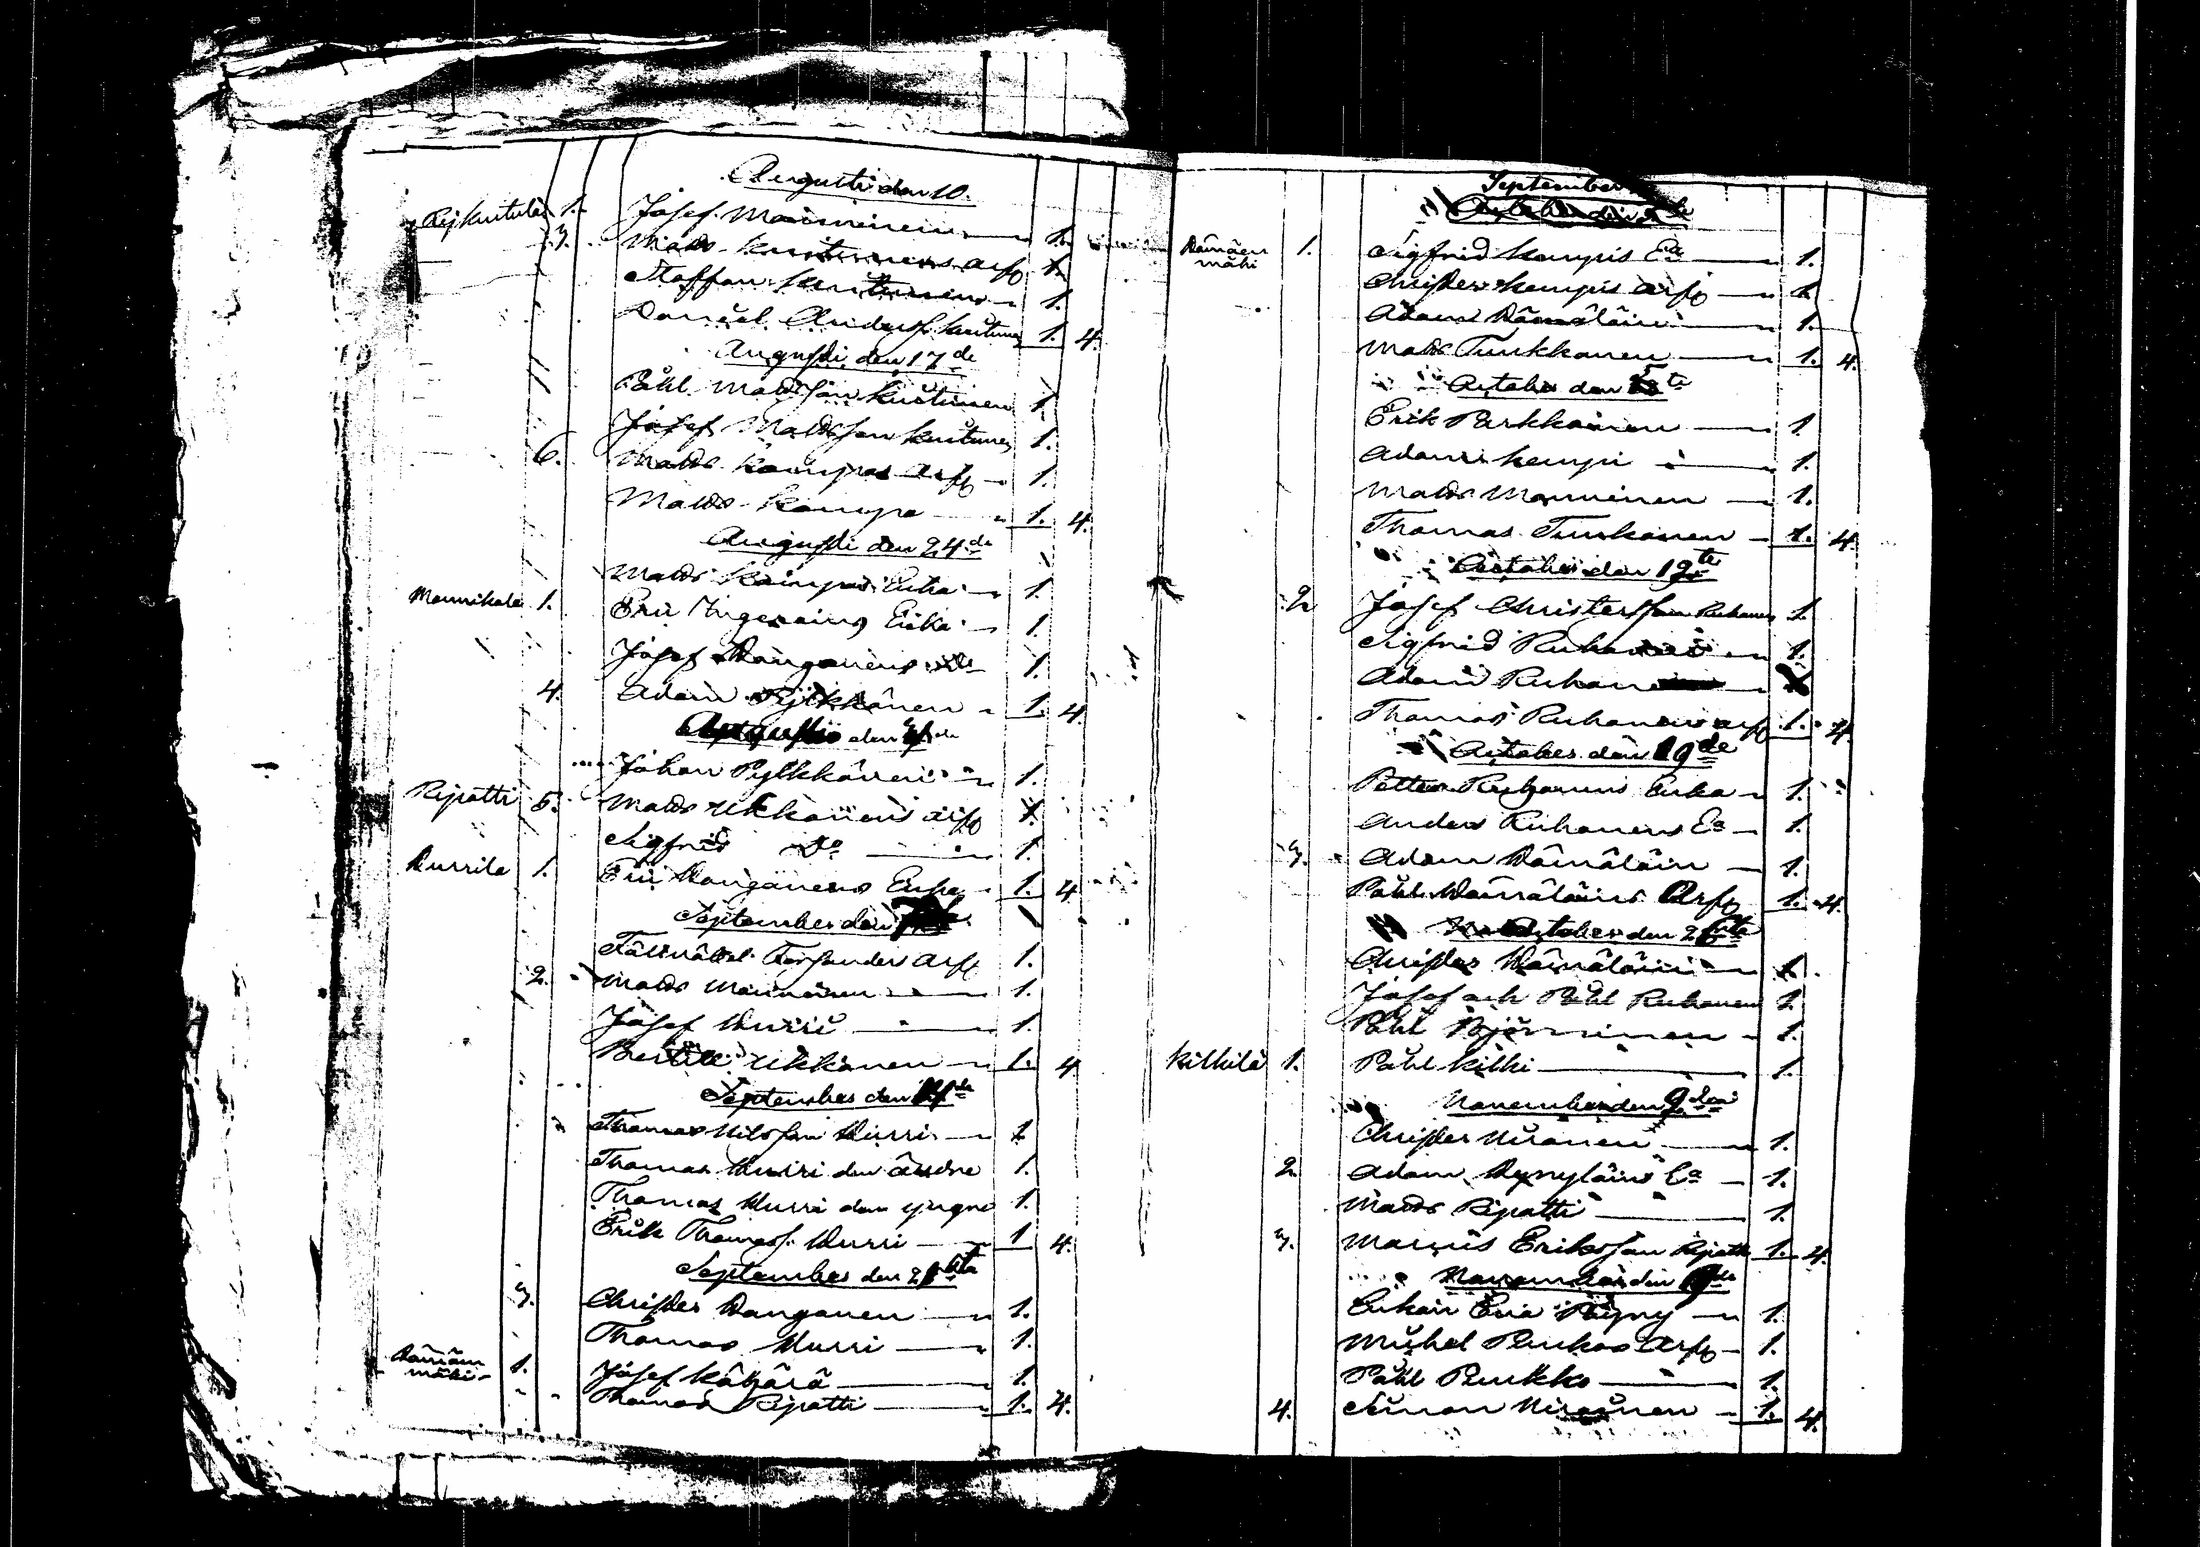 Augusti den 10.
Rijkutula 1. Josef Manninen 1.
3. Mads Kuitunens arfv 1.
Staffan Kuitunens 1.
Daniel Anderss. Kuitunen 1. 4.
Augusti den 17de
Påhl Madsson Kuitunen 1.
Josef Madsson Kuitunen 1.
6. Mads Kamppas arfv 1.
Mads Kamppa 1. 4.
Augusti den 24de
Mads Kamppas Enka 1.
Mannikala 1. Eric Enka 1.
Josef Wanganens do 1.
4. Adam Pylkkänen 1. 4.
den
Johan Pylkkänen 1.
Ripatti 5. Mads Ukkonens arfv 1.
Sigfrid do 1.
Wurrila 1. Eric Wanganens Enka 1. 4
September den
Fältväbel arfv 1.
2. Mads Manninen 1.
Josef Wurri 1.
Bertill Ukkonen 1. 4
September den
Thomas Nilsson Wurri 1.
Thomas Wurri den äldre 1.
Thomas Wurri den yngre 1.
Erik Thomass. Wurri 1 4.
September den
3. Christer Wanganen 1.
Thomas Wurri 1.
Wämäinmäki 1. Josef Kähärä 1.
Thomas Ripatti 1. 4.
September
Wämäenmäki 1. Sigfrid Kempis Ea 1.
Christer Kempis arfv 1.
Adam Wämäläin 1.
Mads Turkkanen 1. 4.
October den
Erik Parkkoinen 1.
Adam Kempi 1.
Mads Manninen 1.
Thomas Turkanen 1. 4.
October den 12te
2 Josef Christersson Ruhanen 1.
Sigfrid Ruhanen 1.
Adam Ruhanen
Thomas Ruhanens arfv 1. 4.
October den 19de
Petter Ruhanens Enka 1.
Anders Ruhanens Ea 1.
3. Adam Wämäläin 1.
Påhl Wämäläins Arfv 1. 4.
October den
Christer Wämäläin 1.
Josef och Påhl Ruhanen 1.
Påhl Björninen 1.
Kilkilä 1. Påhl Kilki 1.
November den 9de
Christer Niranen 1.
2. Adam Ea 1.
Mads Ripatti 1.
3. Eriksson Ripatti 1. 4.
November den
Enkan Eva 1.
Michel Penkas Arfv 1.
Påhl Penkko 1.
4. Simon Niranen 1. 4.